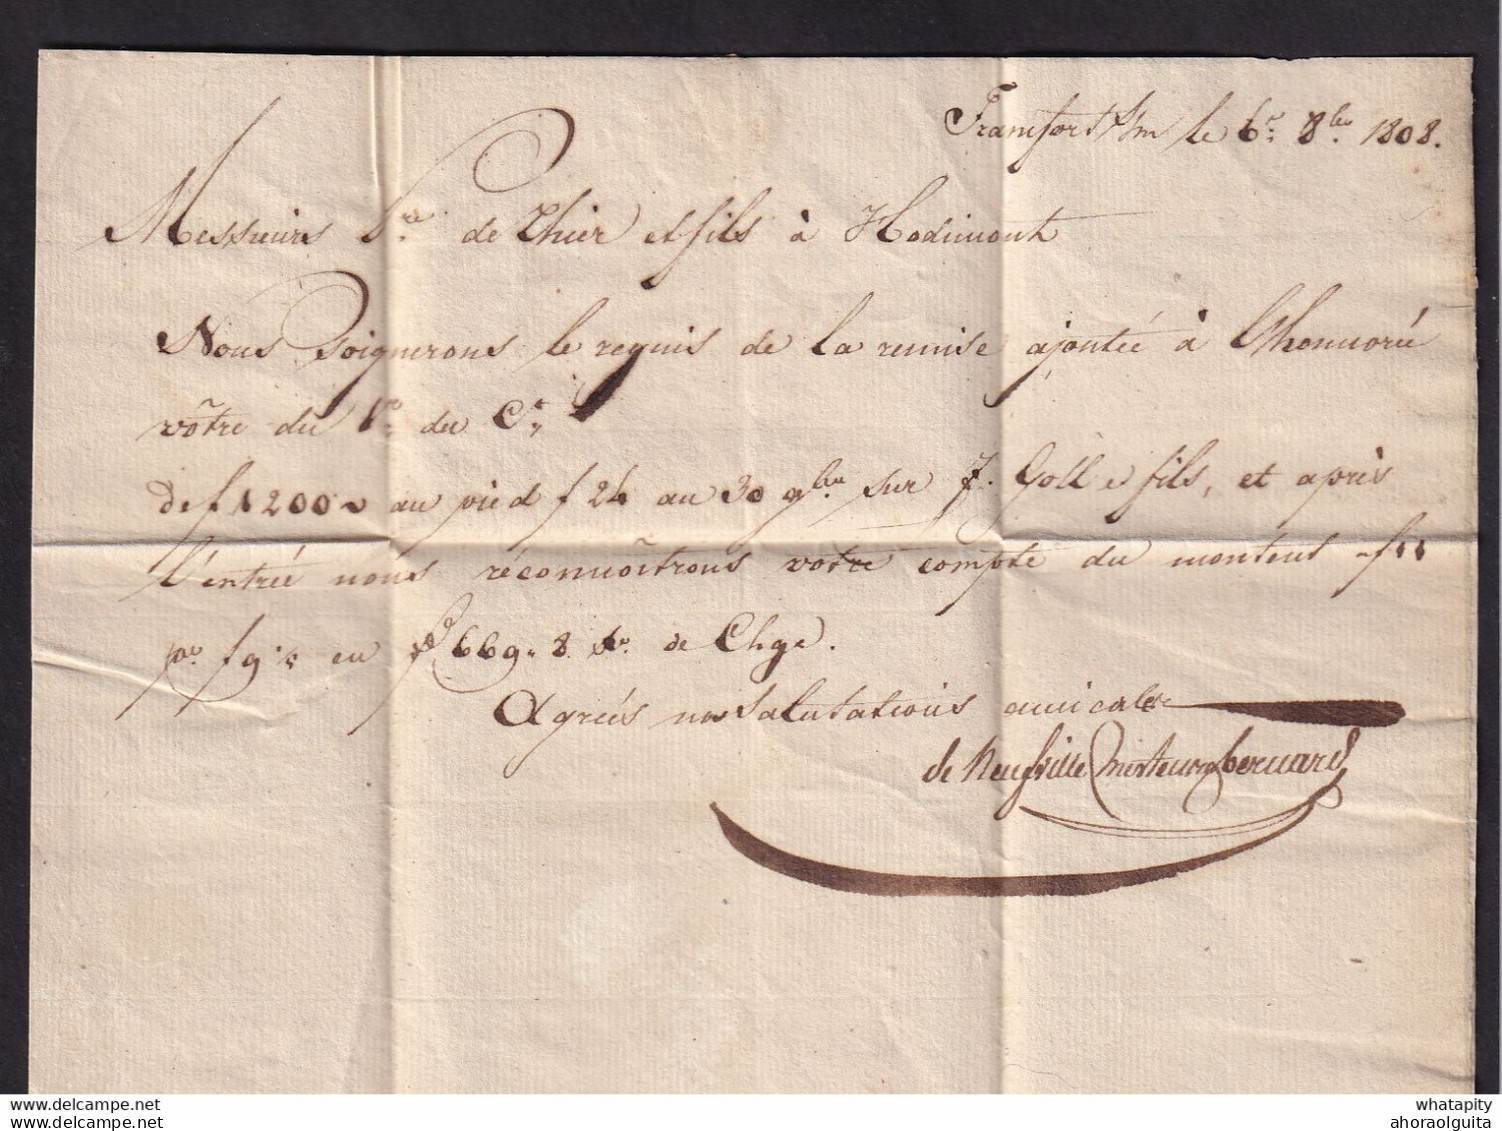 Francfort s/m le 6.e 8bre 1808.
Messieurs de Thier et fils à Hodimont
Nous soignerons le requis de la remise ajoutée à l'honnorée
vôtre du 1.r du Ct
de f 1200 ~ au pied f 24 au 30 9bre sur J. Goll e fils, et après
l'entrée nous réconnoîtrons votre compte du montent
en 669. 8 de Chge.
Agrées nos salutations amicales
de Neufville Mertens Bernard
whatapity
ahoraolguita